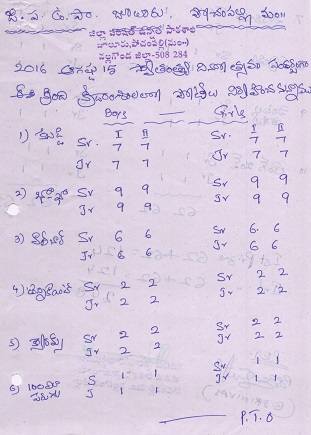 జి. ప. ఉ. పా. జూలూరు, పోచంపల్లి మం॥
జిల్లా పరిషత్ ఉన్నత పాఠశాల
జూలూరు, పోచంపల్లి(మం॥)
నల్లగొండ జిల్లా-508 284
2016 ఆగష్టు 15 స్వాతంత్ర్య దినోత్సవ సందర్భంగా
ఈ క్రింది క్రీడాంశాలలో పోటీలు నిర్వహించుచున్నాము
Boys — Girls
I II I II
1) కబడ్డి Sr 7 7 Sr. 7 7
Jr 7 7 Jr 7 7
2) ఖో-ఖో Sr 9 9 Sr 9 9
Jr 9 9 Jr 9 9
3) వాలీబాల్ Sr 6 6 Sr 6. 6
Jr 6 6 Jr 6 6
4) Sr 2 2 Sr 2 2
Jr 2 2 Jr 2 2
5) క్యారమ్స్ Sr 2 2 Sr 2 2
Jr 2 2 Jr 2 2
6) 100మీ పరుగు S 1 1 Sr 1 1
J 1 1 Jr 1 1
P.T.O